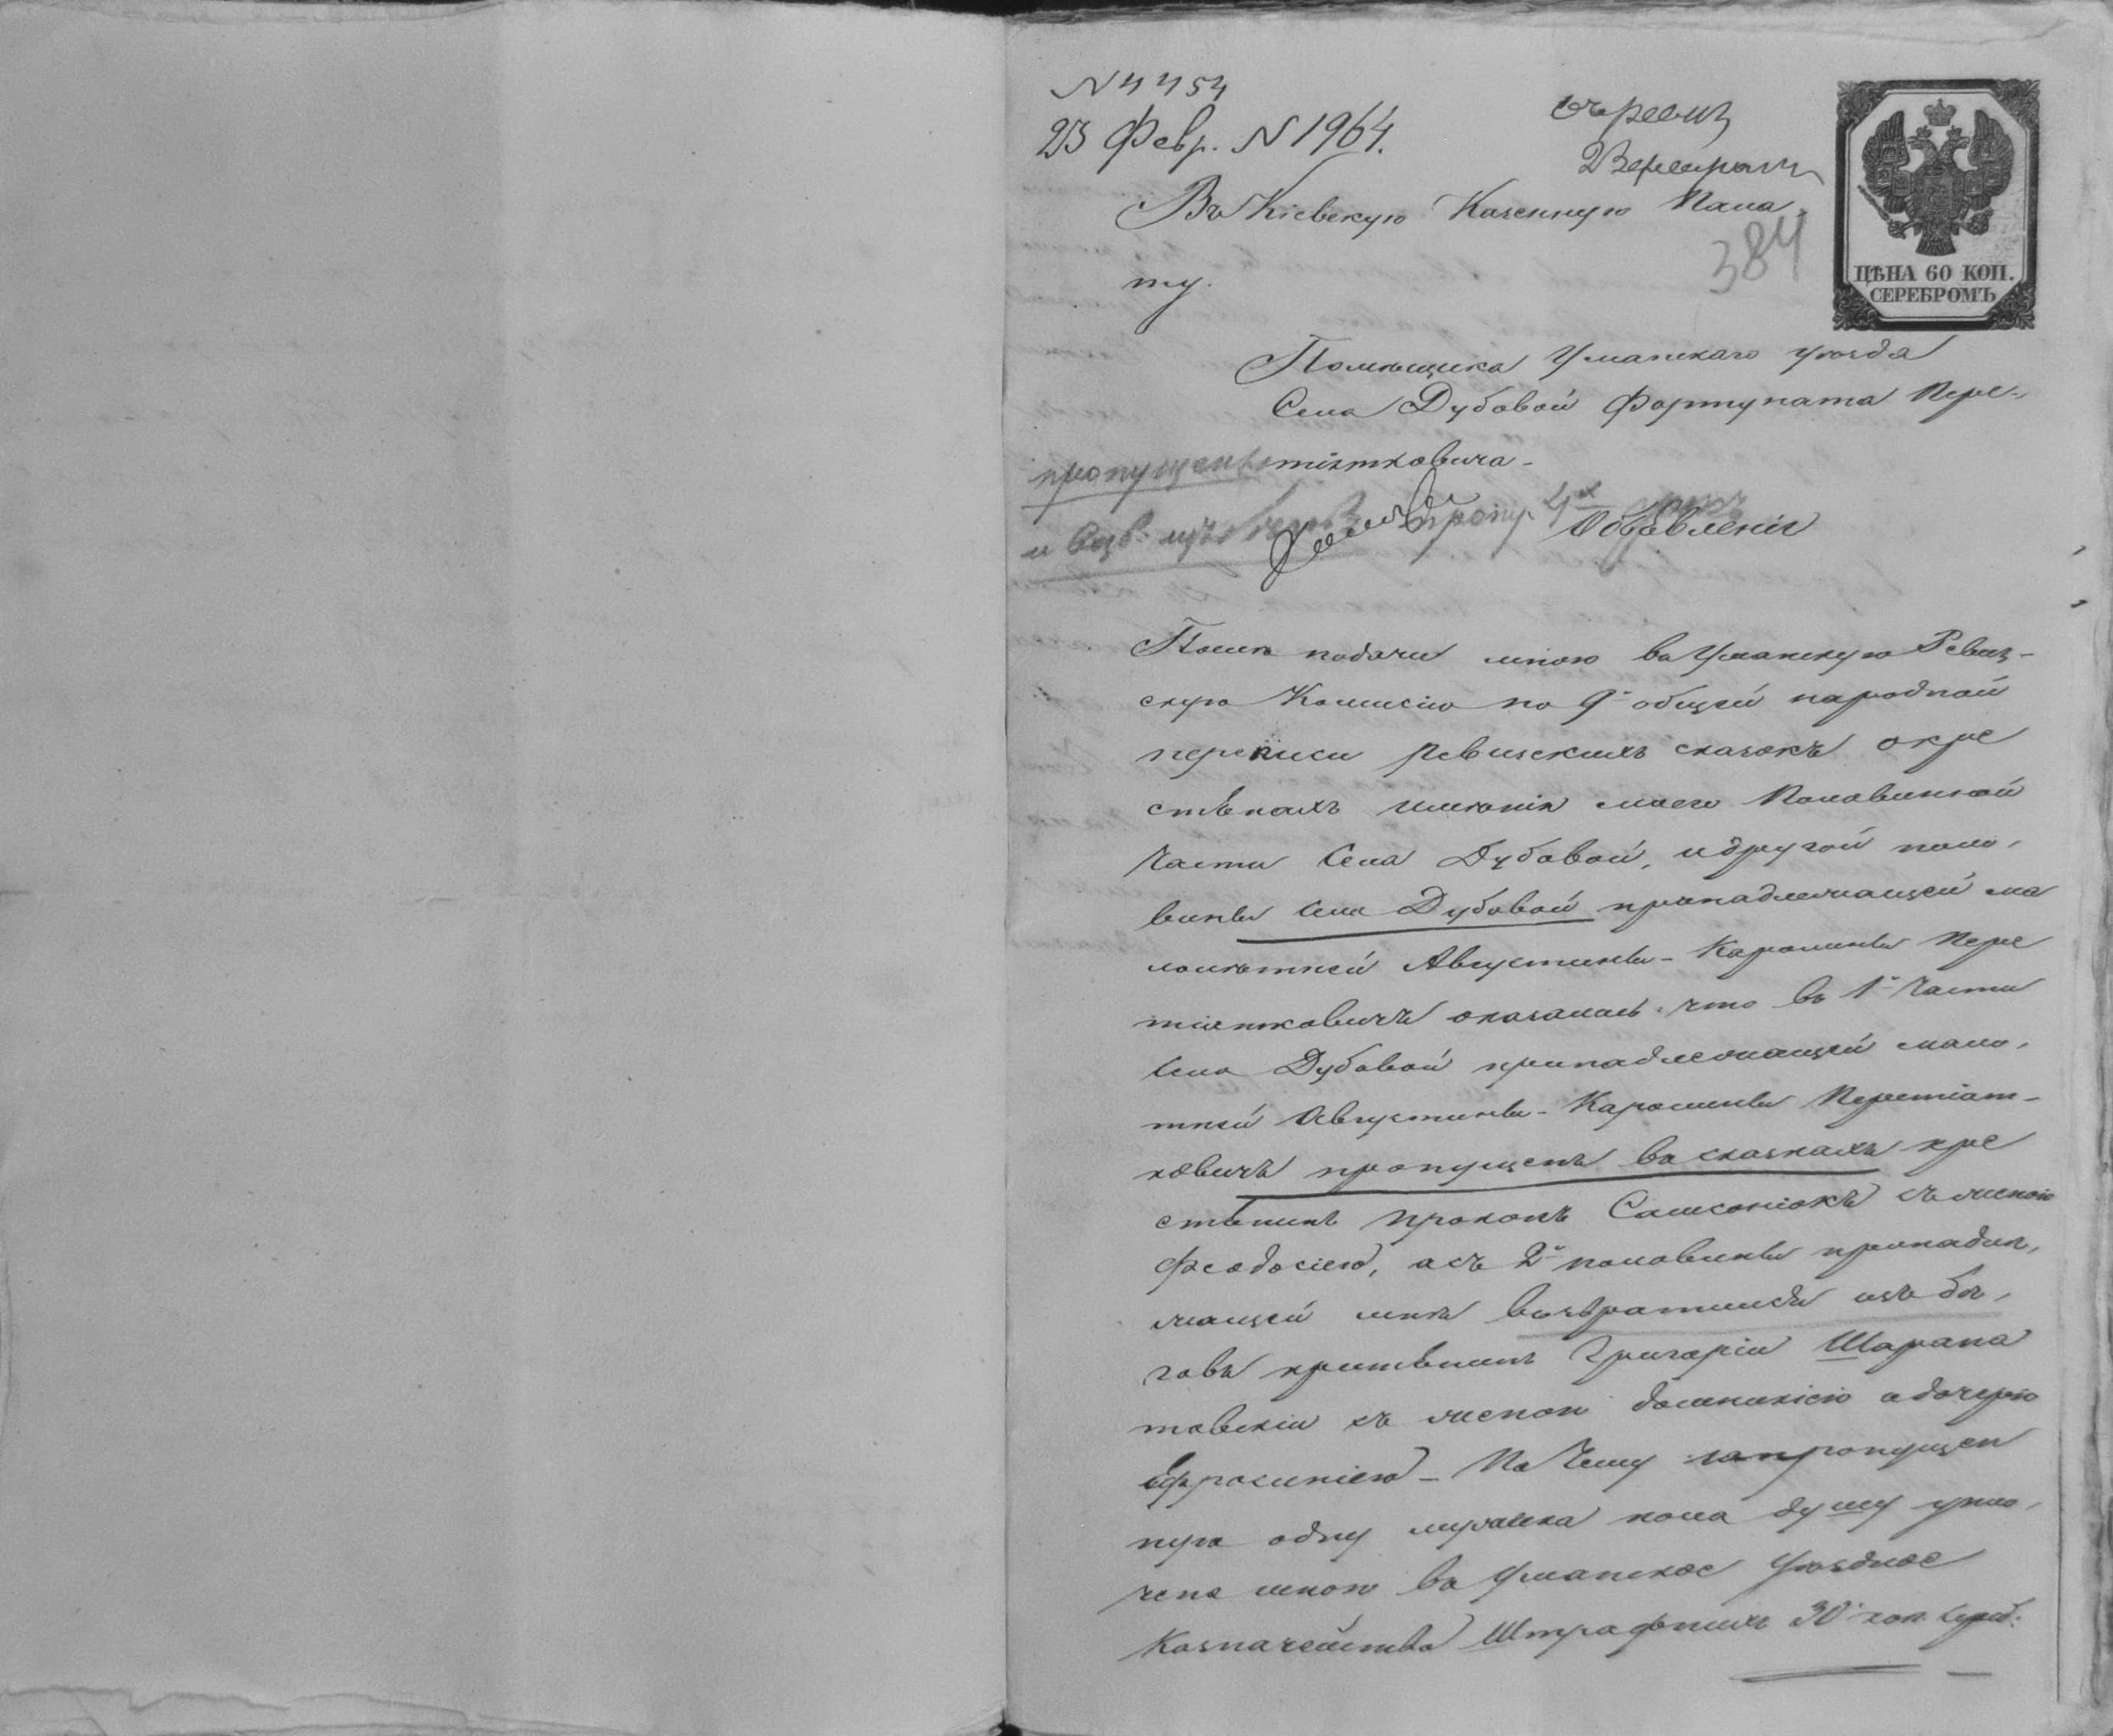 N 4454
23 Февр. N 1964.
Въ Кіевскую Казенную Пала
ту.
384
ЦѢНА 60 КОП.
СЕРЕБРОМЪ
Помѣщика Уманскаго уѣзда
Села Дубовой Фортуната Пере-
тіятковича
пропущено
Объявленія
После подачи мною въ Уманскую Ревиз-
скую Комисію по 9й общей народной
переписи Ревизскихъ сказокъ о кре
стьянахъ имѣнія моего Половинной
части Села Дубовой, и другой поло-
вины села Дубовой принадлежащей ма
лолѣтней Августины-Каролины Пере
тіятковичъ оказалось что въ 1й части
села Дубовой принадлежащей мало-
тней Августины-Каролины Перетіат-
ковичъ пропущенъ въ сказкахъ кре
стьянинъ Прокопъ Самсонюкъ съ женою
Феодосіею, а съ 2й половины принадле-
жащей мнѣ возвратился изъ бѣ-
говъ крестьянинъ Григорій Шарапа
товскій съ женою Доминикіею и дочерью
Ефросиніею - По чему за пропущен
ную одну мужеска пола душу упла-
чено мною въ Уманское Уѣздное
Казначейство Штрафныхъ 30 коп. сереб: